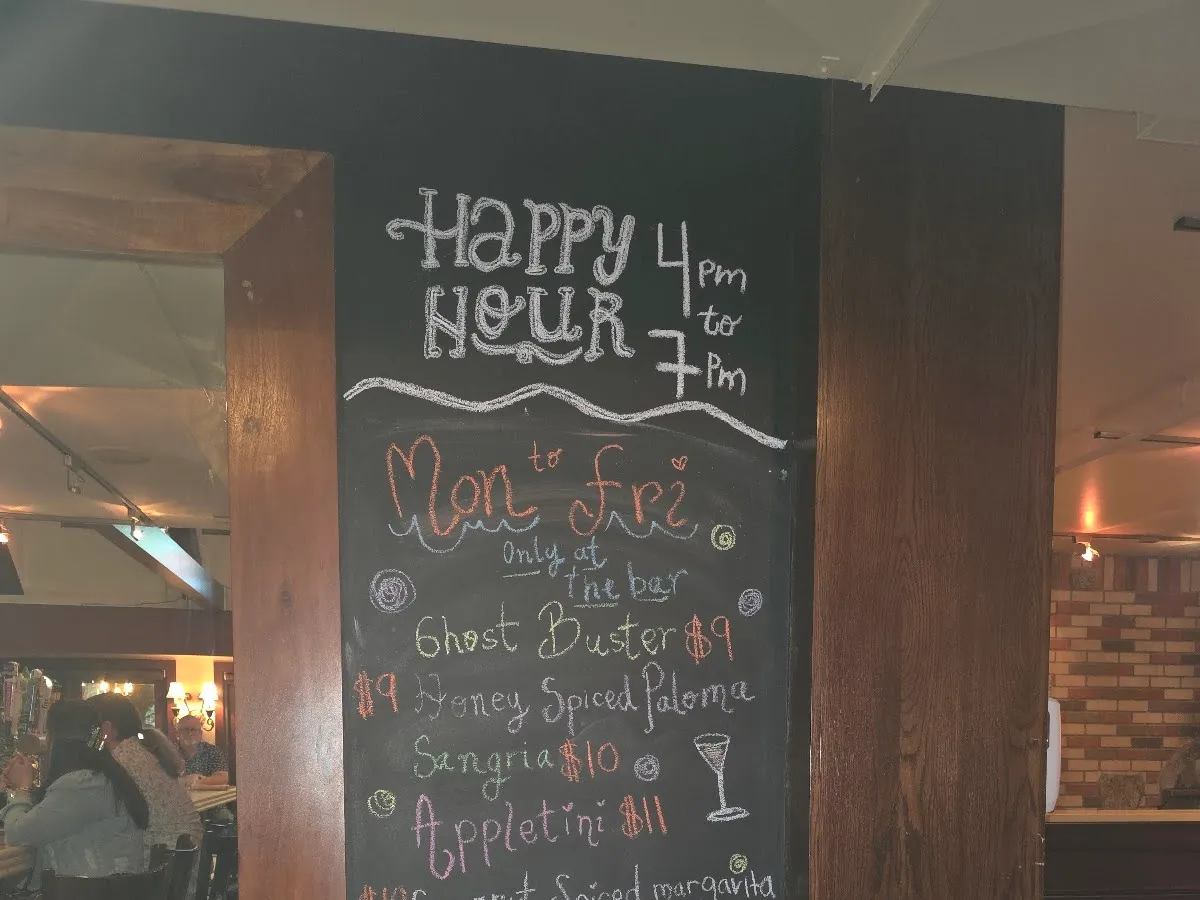 Happy 4pm
Hour to
7pm
Mon to Fri
Only at
the bar
Ghost Buster $9
$9 Honey Spiced Paloma
Sangria $10
Appletini $11
Spiced margarita